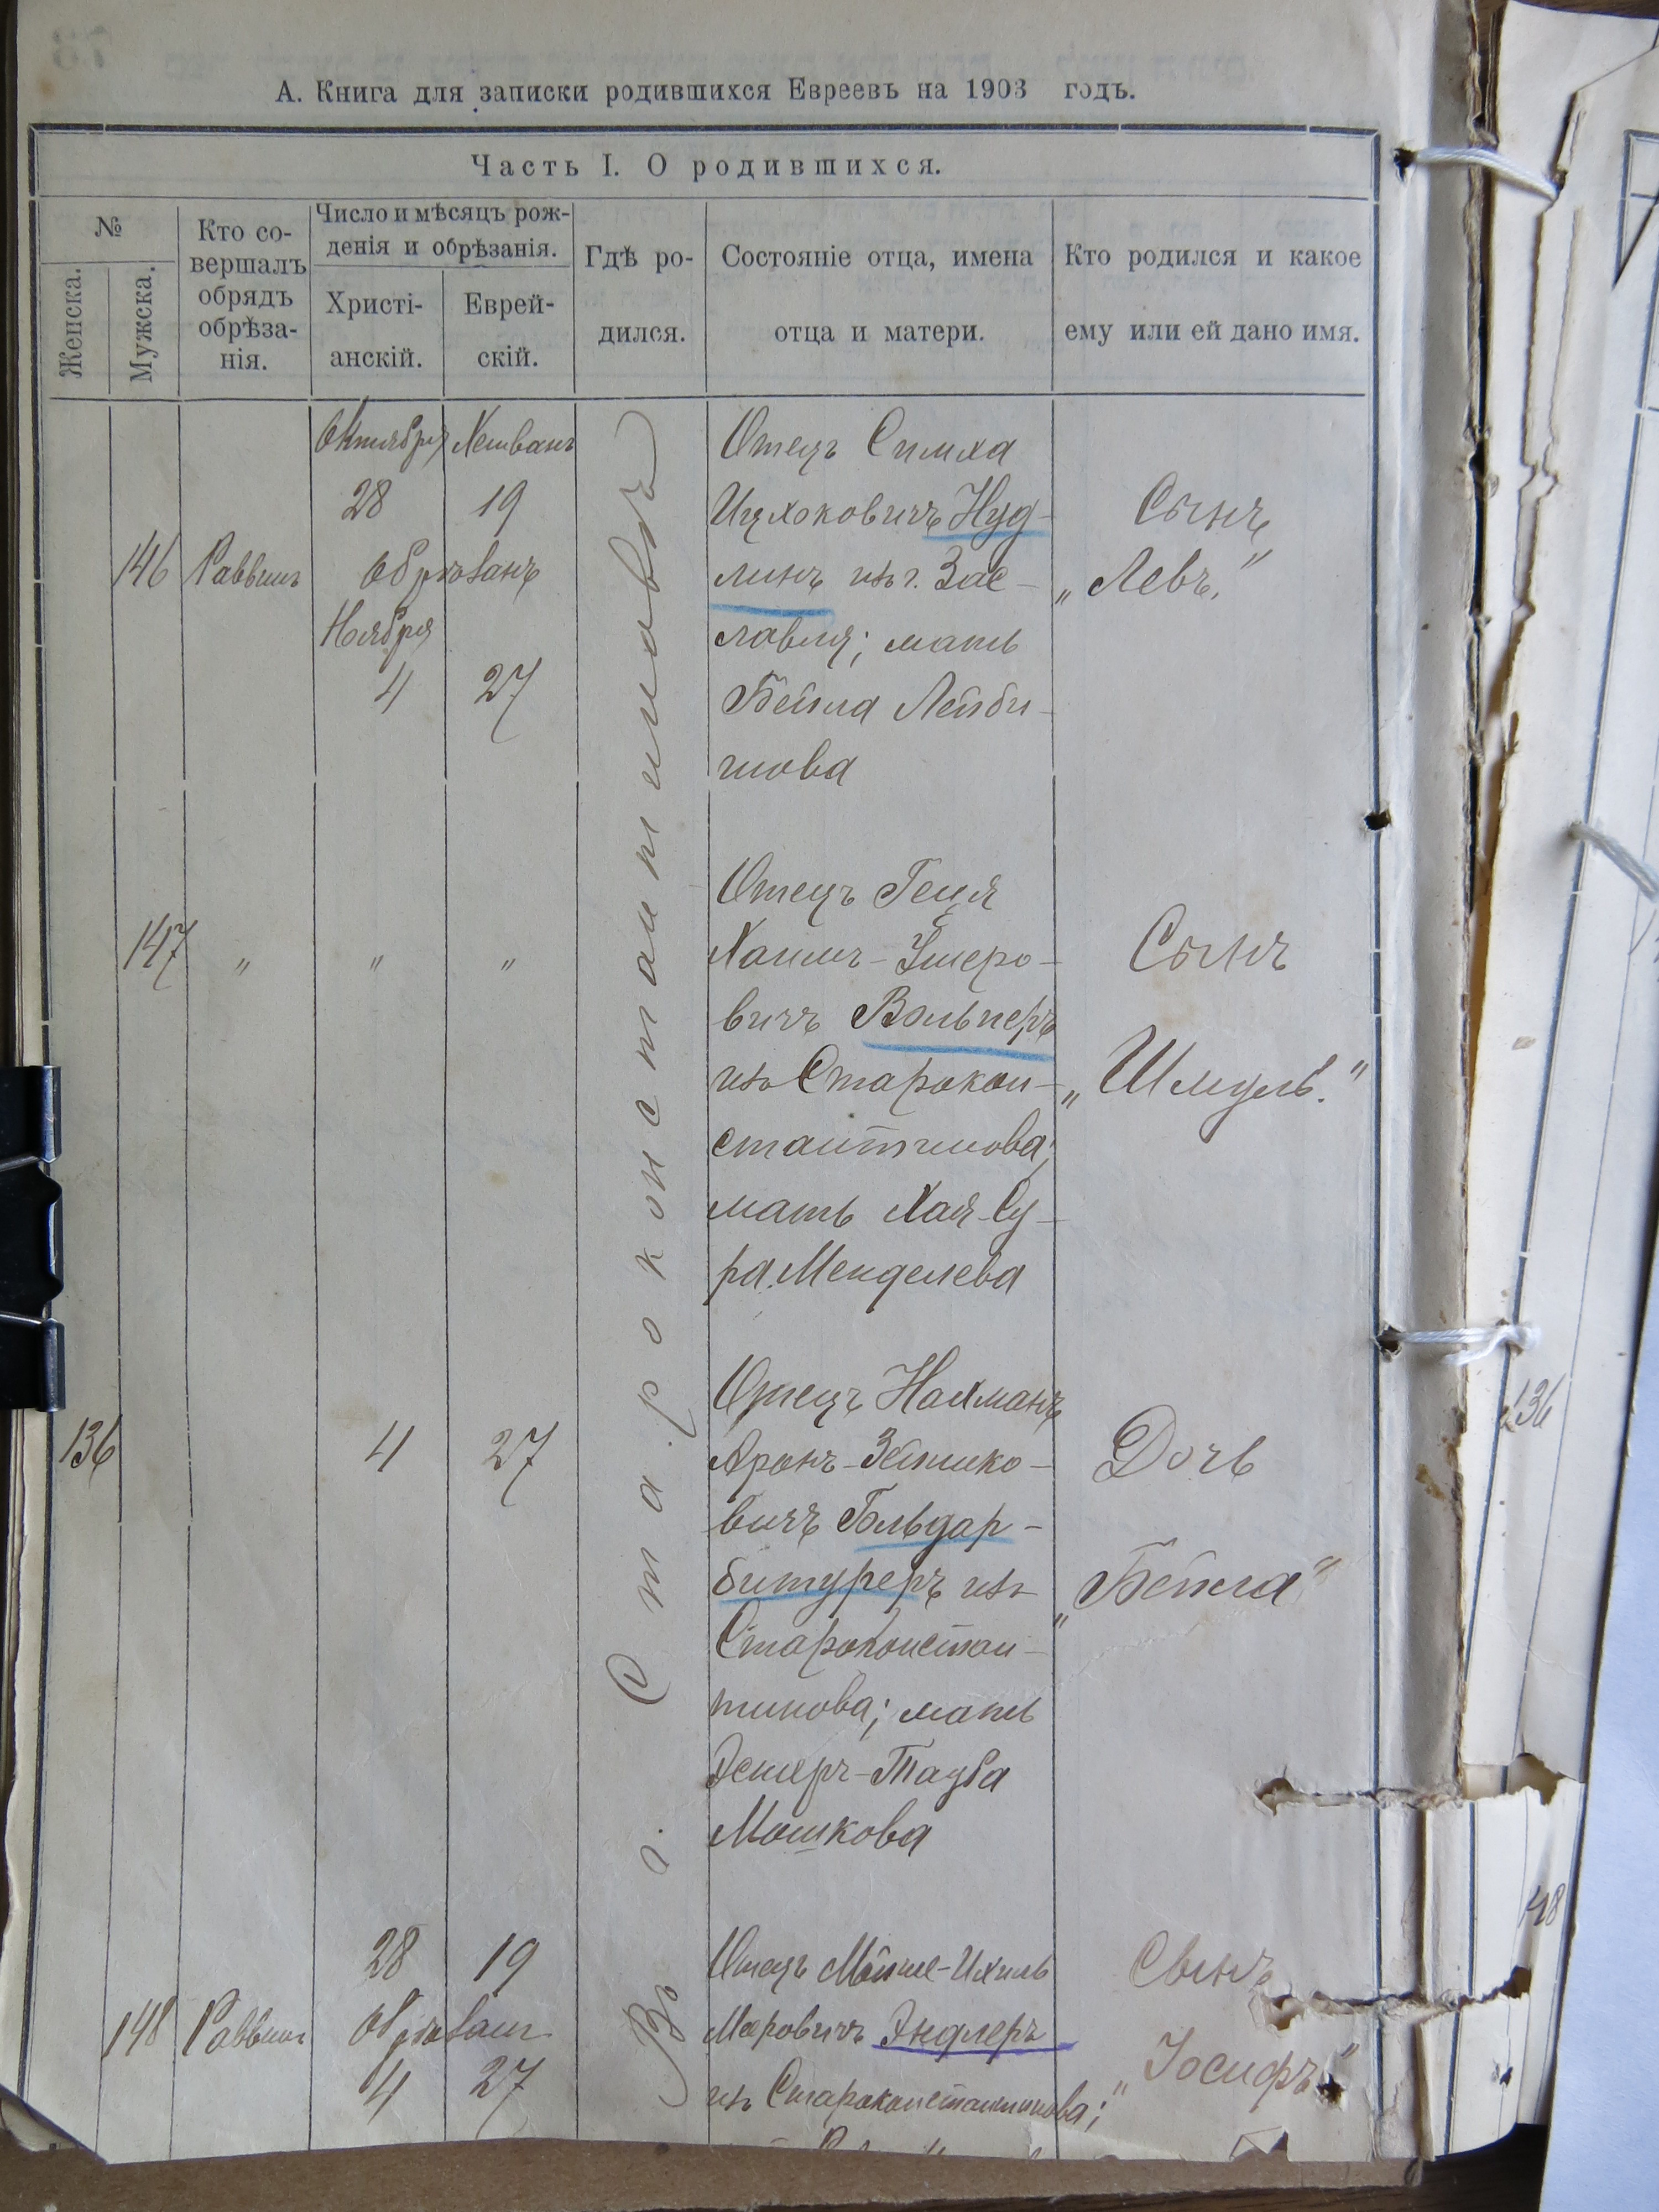 А. Книга для записки родившихся Евреевъ на 1903 годъ.
Часть I. О родившихся.
№
Женска.
Мужска.
Кто со-
вершалъ
обрядъ
обрѣза-
нія.
Число и мѣсяцъ рож-
денія и обрѣзанія.
Христі-
анскій.
Еврей-
скій.
Гдѣ ро-
дился.
Состояніе отца, имена
отца и матери.
Кто родился и какое
ему или ей дано имя.
Въ г. Староконстантиновѣ
Октября Хешванъ
28 19
146 Раввинъ Обрѣзанъ
Ноября
4 27
Отецъ Симха
Ицхоковичъ Нуд-
линъ изъ г. Зас-
лавля; мать
Бейла Лейби-
шова
Сынъ
„Левъ."
147 " " "
Отецъ Геця
Хаимъ-Ушеро-
вичъ Вольперъ
изъ Старокон-
стантинова;
мать Хая-Су-
ра Менделева
Сынъ
„Шмуль."
136 4 27
Отецъ Нахманъ
Аронъ-Зельмко-
вичъ
битуреръ изъ
Староконстан-
тинова; мать
Эстеръ-Тауба
Мошкова
Дочь
„Бейла"
28 19
148 Раввинъ Обрѣзанъ
4 27
Отецъ Мойше-Ихиль
Меровичъ Эндлеръ
изъ Староконстантинова;
Сынъ
„Іосифъ"
136
148